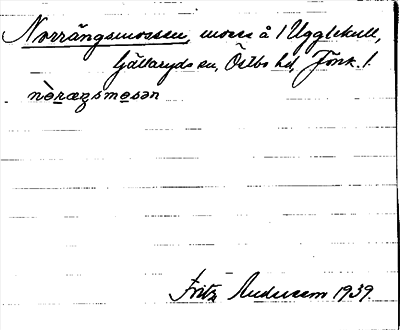 Norrängsmossen, mosse å 1 Ugglekull,
Gällaryds sn, Östbo hd, Jönk. l.
nòræŋsmosən
Fritz Andersson 1939.